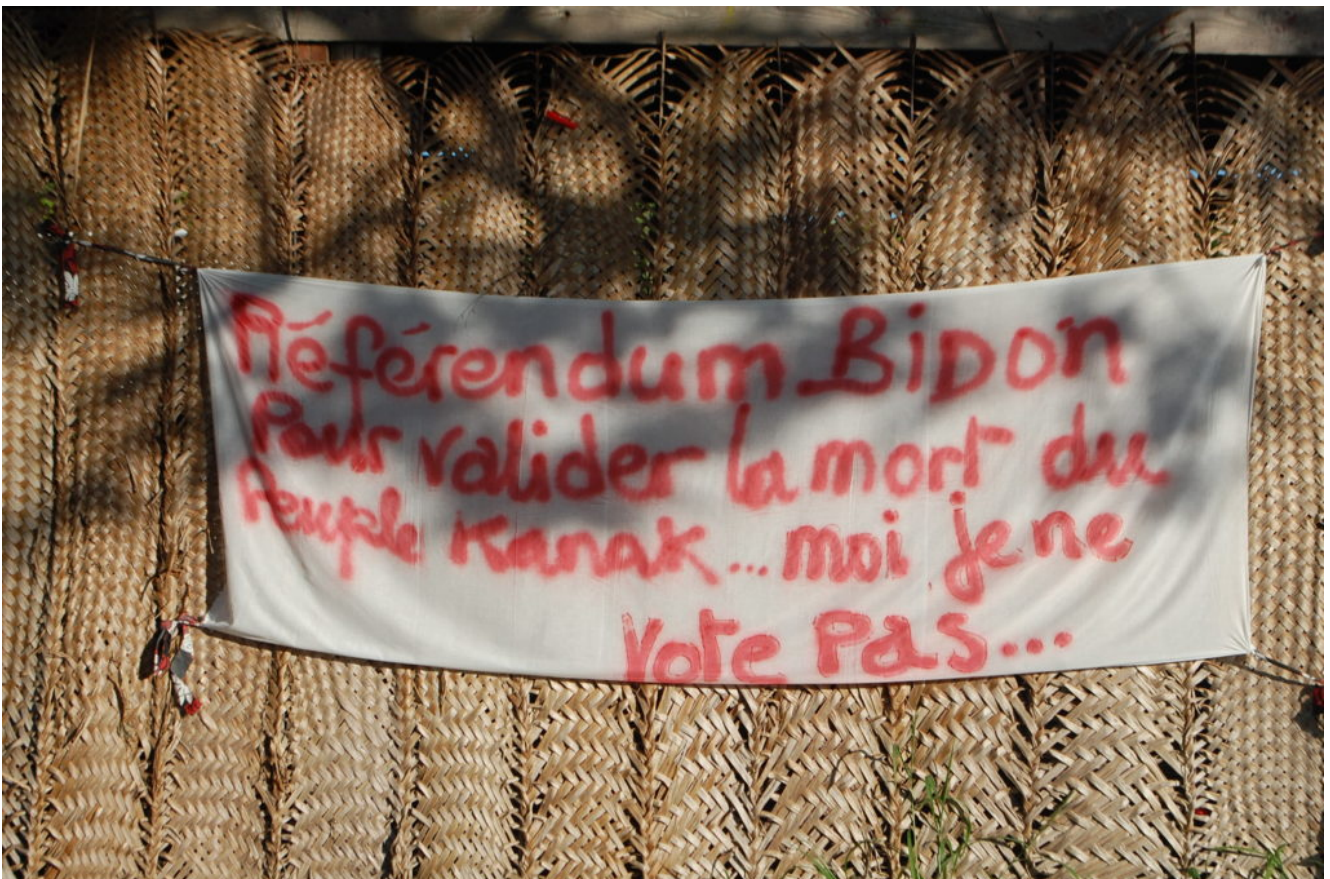 Référendum BiDon
Pour valider la mort du
Peuple Kanak... moi je ne
Vote Pas...